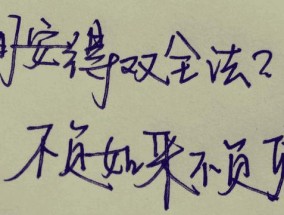 安得双全法？
不负如来不负